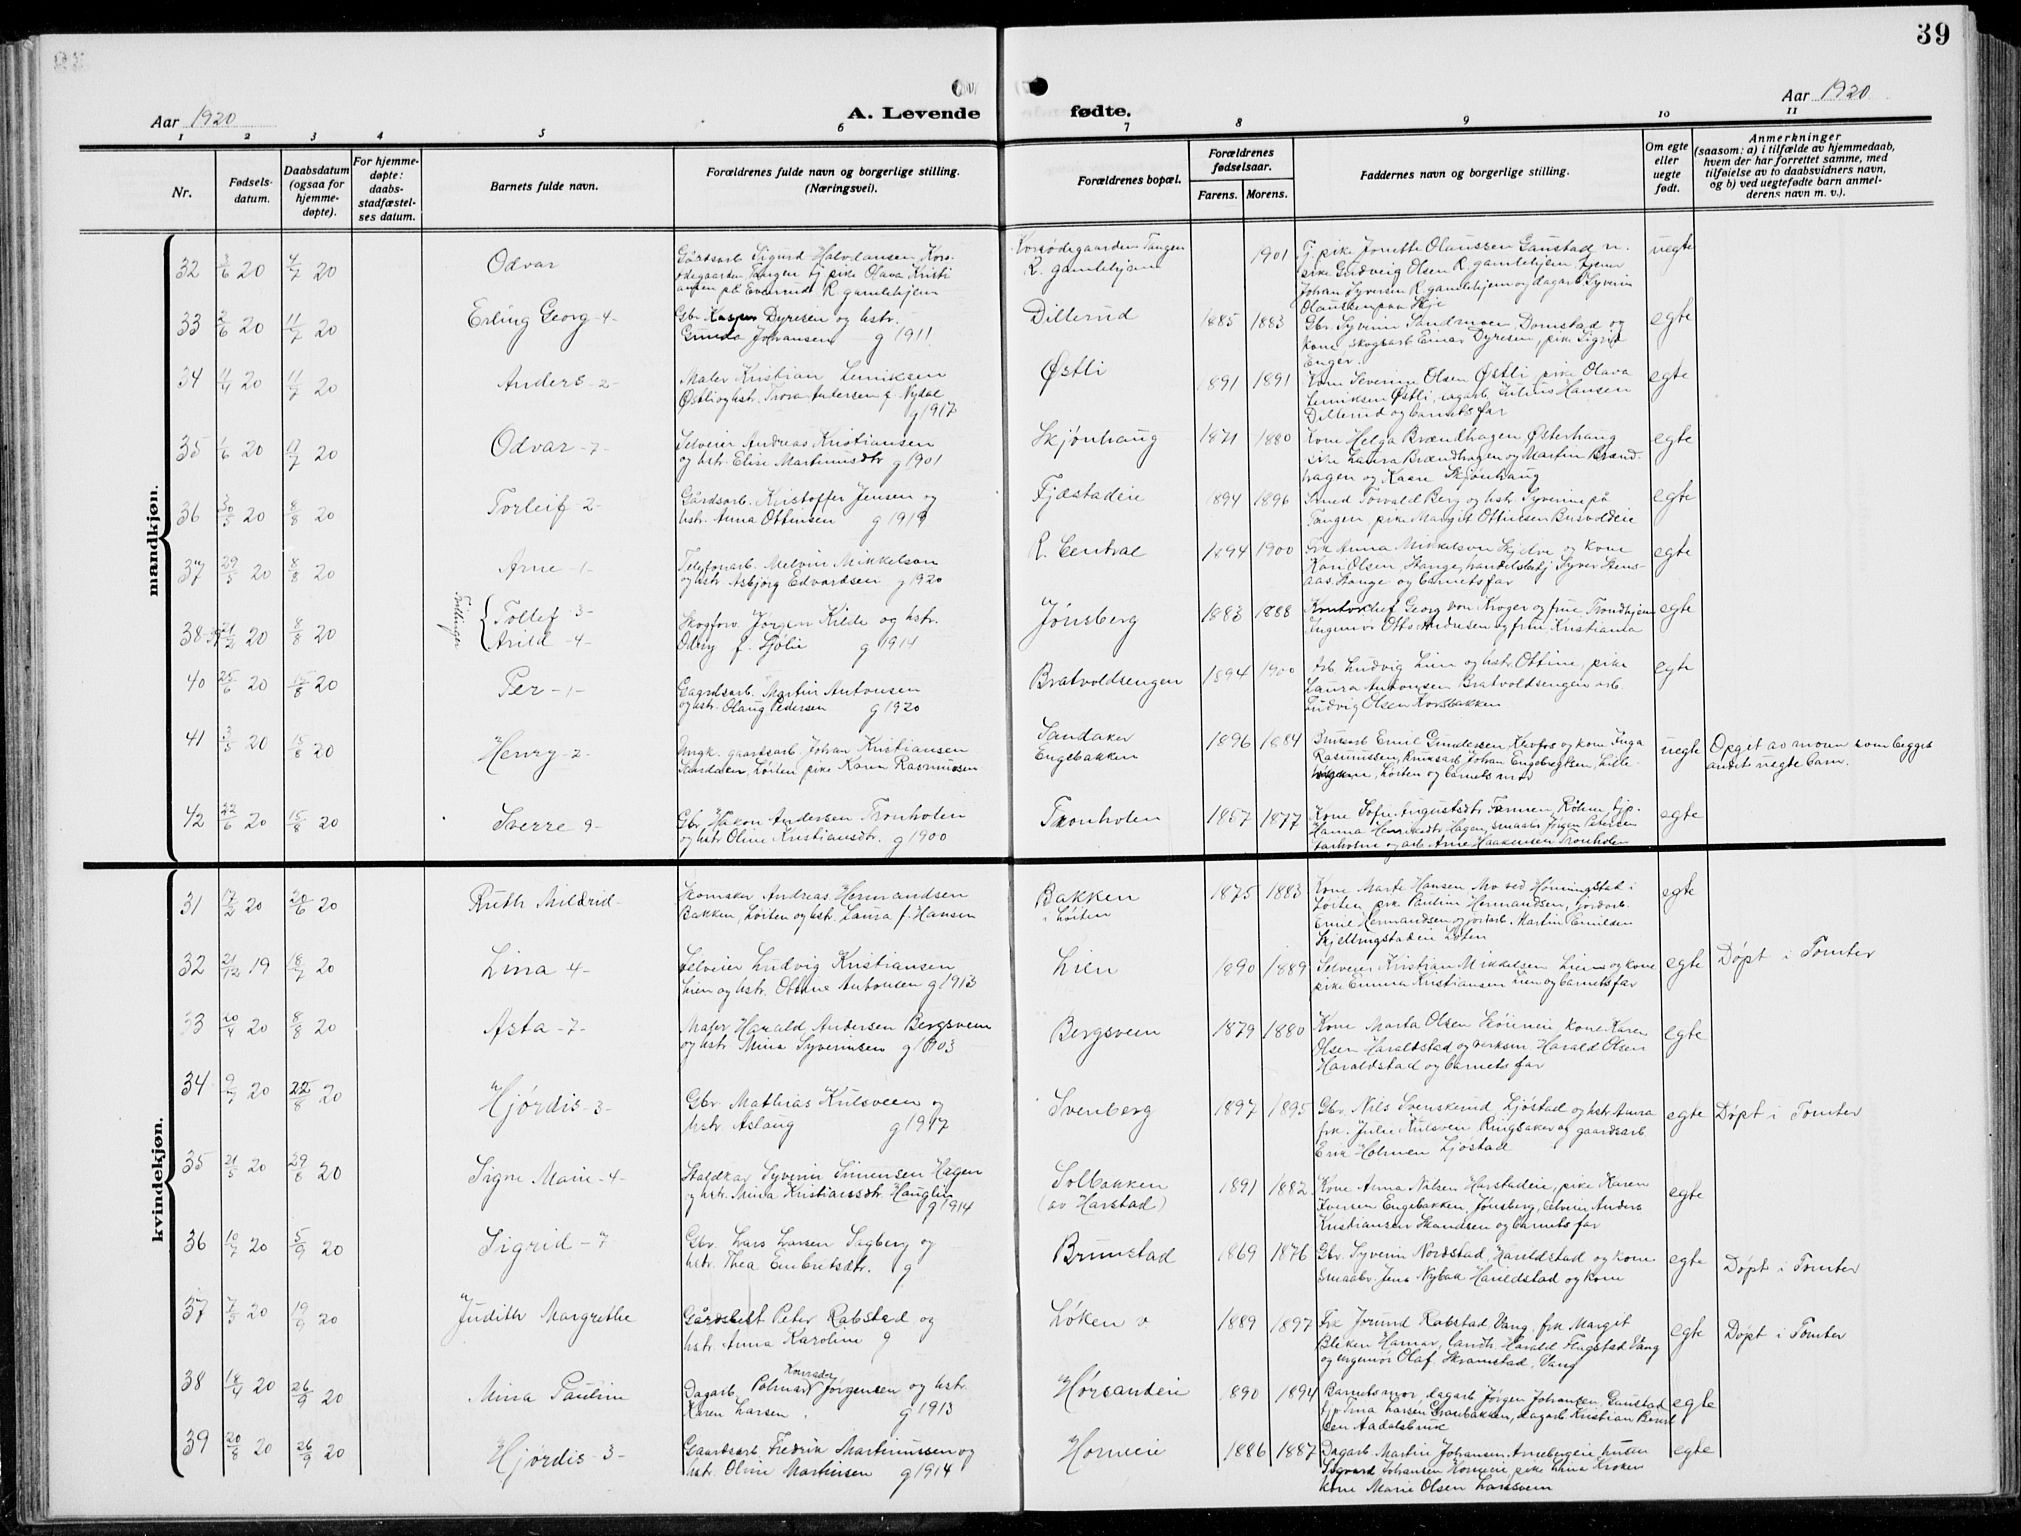 39
Aar 1920
A. Levende fødte.
Aar 1920
1 2 3 4 5 6 7 8 9 10 11
Nr.
Fødsels-
datum.
Daabsdatum
(ogsaa for
hjemme-
døpte).
For hjemme-
døpte:
daabs-
stadfæstel-
ses datum.
Barnets fulde navn.
Forældrenes fulde navn og borgerlige stilling.
(Næringsvei).
Forældrenes bopæl.
Forældrenes
fødselsaar.
Farens. Morens.
Faddernes navn og borgerlige stilling.
Om egte
eller
uegte
født.
Anmerkninger
(saasom: a) i tilfælde av hjemmedaab,
hvem der har forrettet samme, med
tilføielse av to daabsvidners navn,
og b) ved uegtefødte barn anmel-
derens navn m. v.).
mandkjøn.
32 3/6 20 4/7 20 Odvar
Gårdsarb. Sigurd Halvdansen Kors-
ødegaarden Tangen tj. pike Olava Kristi
ansen R. gamlehjem
Korsødegaarden Tangen
R. gamlehjem
1901
Tj. pike Jonette Olaussen Gaustad
pike Gudveig Olsen R. gamlehjem
Johan Syversen R. gamlehjem og dagarb. Syverin
Olaussen paa Skje
uegte
33 2/6 20 11/7 20 Erling Georg - 4 -
Gbr. Kasper Dyresen og hstr.
Gunda Johansen g 1911
Dillerud
1885 1883
Gbr. Syverin Sandmoen, Domstad og
kone, skogsarb. Einar Dyresen, pike Sigrid
Enger.
egte
34 11/4 20 11/7 20 Anders - 2 -
Maler Kristian Lenniksen
Østli og hstr. Tora Andersen f. Nydal
g 1917
Østli
1891 1891
Kone Severine Olsen Østli, pike Olava
Lenniksen Østli, sagarb. Julius Hansen
Dillerud og barnets far
egte
35 1/6 20 17/7 20 Odvar - 7 -
Selveier Andreas Kristiansen
og hstr. Elise Martinusdtr. g 1901
Skjønhaug
1871 1880
Kone Helga Brændhagen Østerhaug
pike Laura Brændhagen og Martin Brænd-
hagen og Kaare Skjønhaug
egte
36 30/5 20 8/8 20 Torleif - 2 -
Gårdsarb. Kristoffer Jensen og
hstr. Anna Ottinsen g 1919
Fjæstadeie
1894 1896
Smed Torvald Berg og hstr. Syverine på
Tangen, pike Margit Ottinsen Busvoldeie
egte
37 29/5 20 8/8 20 Arne - 1 -
Telefonarb. Melvin Mikkelsen
og hstr. Asbjørg Edvardsen g 1920
R. Central
1894 1900
Frk. Anna Mikkelsen Skjelve og kone
Kari Olsen, Stange, handelsbetj. Syver Stens-
aas. Stange og barnets far
egte
38-39 21/2 20 8/8 20
Tvillinger
Tollef - 3 -
Arild - 4 -
Skogforv. Jørgen Kilde og hstr.
f. Sjølie g 1914
Jønsberg
1883 1888
Kontorchef Georg von Kroger og frue Trondhjem
Ingeniør Otto Andresen og frue Kristiania
egte
40 25/6 20 15/8 20 Per - 1 -
Gaardsarb. Martin Antonsen
og hstr. Olaug Pedersen g 1920
Bratvoldsengen
1894 1900
Arb. Ludvig Lien og hstr. Ottine, pike
Laura Antonsen Bratvoldsengen arb.
Ludvig Olsen Korsbakken
egte
41 3/5 20 15/8 20 Henry - 2 -
Ungk. gaardsarb. Johan Kristiansen
Sandaker, Løiten pike Karen Rasmussen
Sandaker
Engebakken
1896 1884
Bruksarb. Emil Gundersen Klevfos og kone Inga
Rasmussen, bruksarb. Johan Engebretsen, Lille-
Løiten og barnets mor
uegte
Opget av moren som begges
andet uegte barn.
42 22/6 20 15/8 20 Sverre 9 -
Gbr. Håkon Andersen Tronholen
og hstr. Oline Kristiansdtr. g 1900
Tronholen
1867 1877
Kone Sofie Augustsdtr. Røhne, tjp.
Hanna Hagen, smaabr. Jørgen Petersen
og arb. Arne Haakensen Tronholen
egte
kvindekjøn.
31 17/2 20 20/6 20 Ruth Mildrid -
Skomaker Andreas Hermandsen
Bakken, Løiten og hstr. Laura f. Hansen
Bakken
i Løiten
1875 1883
Kone Marte Hansen Mo ved Hønningstad i
Løiten pike Pauline Hermandsen, jordarb.
Emil Hermandsen og jordarb. Martin Emilsen
Skjellingstadeie Løten
egte
32 21/12 19 18/7 20 Lina 4 -
Selveier Ludvig Kristiansen
Lien og hstr. Ottine Antonsen g 1913
Lien
1890 1889
Selveier Kristian Mikkelsen Lien og kone
pike Emma Kristiansen Lien og barnets far
egte
Døpt i Tomter
33 20/4 20 8/8 20 Asta - 7 -
Maler Harald Andersen Bergsveen
og hstr. Mina Syverinsen g 1903
Bergsveen
1879 1880
Kone Marta Olsen kone Karen
Olsen Haraldstad og verksm. Harald Olsen
Haraldstad og barnets far
egte
34 9/7 20 22/8 20 Hjørdis - 3 -
Gbr. Mathias Kulsveen og
hstr. Aslaug g 1917
Svenberg
1897 1895
Gbr. Nils Svenskerud Ljøstad og hstr. Anna
frk. Julie Kulsveen Ringsaker og gaardsarb.
Erik Holmen Ljøstad
egte
Døpt i Tomter
35 21/5 20 29/8 20 Signe Marie - 4 -
Staldkar Syverin Simensen Hagen
og hstr. Mina Kristiansdtr. Hauglie
g 1914
Solbakken
(av Harstad)
1891 1882
Kone Anna Nilsen Harstadeie, pike Karen
Iversen Engebakken, Jønsberg, selveier Anders
Kristiansen Skandsen og barnets far
egte
36 10/7 20 5/9 20 Sigrid - 7
Gbr. Lars Larsen Sagberg og
hstr. Thea Embretsdtr. g
Brunstad
1869 1876
Gbr. Syverin Nordstad, Haraldstad og kone
smaabr. Jens Nybak Haraldstad og kone
egte
Døpt i Tomter
37 7/5 20 19/9 20 Judith Margrethe
Gårdsbest. Peter Rabstad og
hstr. Anna Karoline g
Løken v
1889 1897
Frk. Jorund Rabstad Vang frk. Margit
Bleken Hamar, Landh. Harald Flagstad Vang
og ingeniør Olaf Skramstad, Vang
egte
Døpt i Tomter
38 18/4 20 26/9 20 Mina Pauline
Konrader
Dagarb. Polmar Jørgensen og hstr.
Karen Larsen. g 1913
Hørsandeie
1890 1894
Barnets mor, dagarb. Jørgen Johansen, Gaustad
tjp. Tina Larsen Granbakken, dagarb. Kristian Bernt
sen Aadalsbruk
egte
39 20/8 20 26/9 20 Hjørdis - 3 -
Gaardsarb. Fredrik Martinussen og
hstr. Oline Martinsen g 1914
Horneie
1886 1887
Dagarb. Martin Johansen, Arnebergeie husm.
Sigvard Johansen Horneie pike Lina Kroken
kone Marie Olsen Larsveen
egte